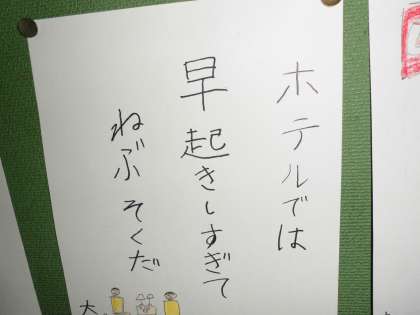 ホテルでは
早起きしすぎて
ねぶそくだ